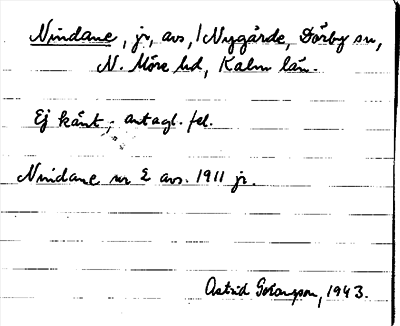 Nindane, jr, avs, i Nygårde, Dörby sn,
N. Möre hd, Kalm län.
Ej känt; antagl. fel.
Nindane ur E avs. 1911 jr.
Astrid Göransson, 1943.